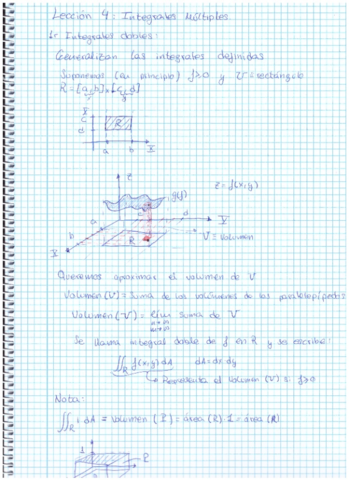 Lección 4: Integrales Múltiples
1. Integrales dobles:
Generalizan las integrales definidas
Suponemos (en principio) f≥0 y V= rectángulo
R=[a,b]×[c,d]
Y
c
d
R
a b X
z
z=f(x,y)
g(f)
a
b
c
d
Y
X
R
V= Volumen
Queremos aproximar el volumen de V
Volumen(V)= Suma de los volúmenes de los paralelepípedos
Volumen(V)= lim suma de V
Se llama integral doble de f en R y se escribe:
∬_R f(x,y) dA dA=dx dy
Representa el Volumen (V) si f≥0
Nota:
∬_R 1 dA = Volumen (P)= área (R)·1 = área (R)
1
P